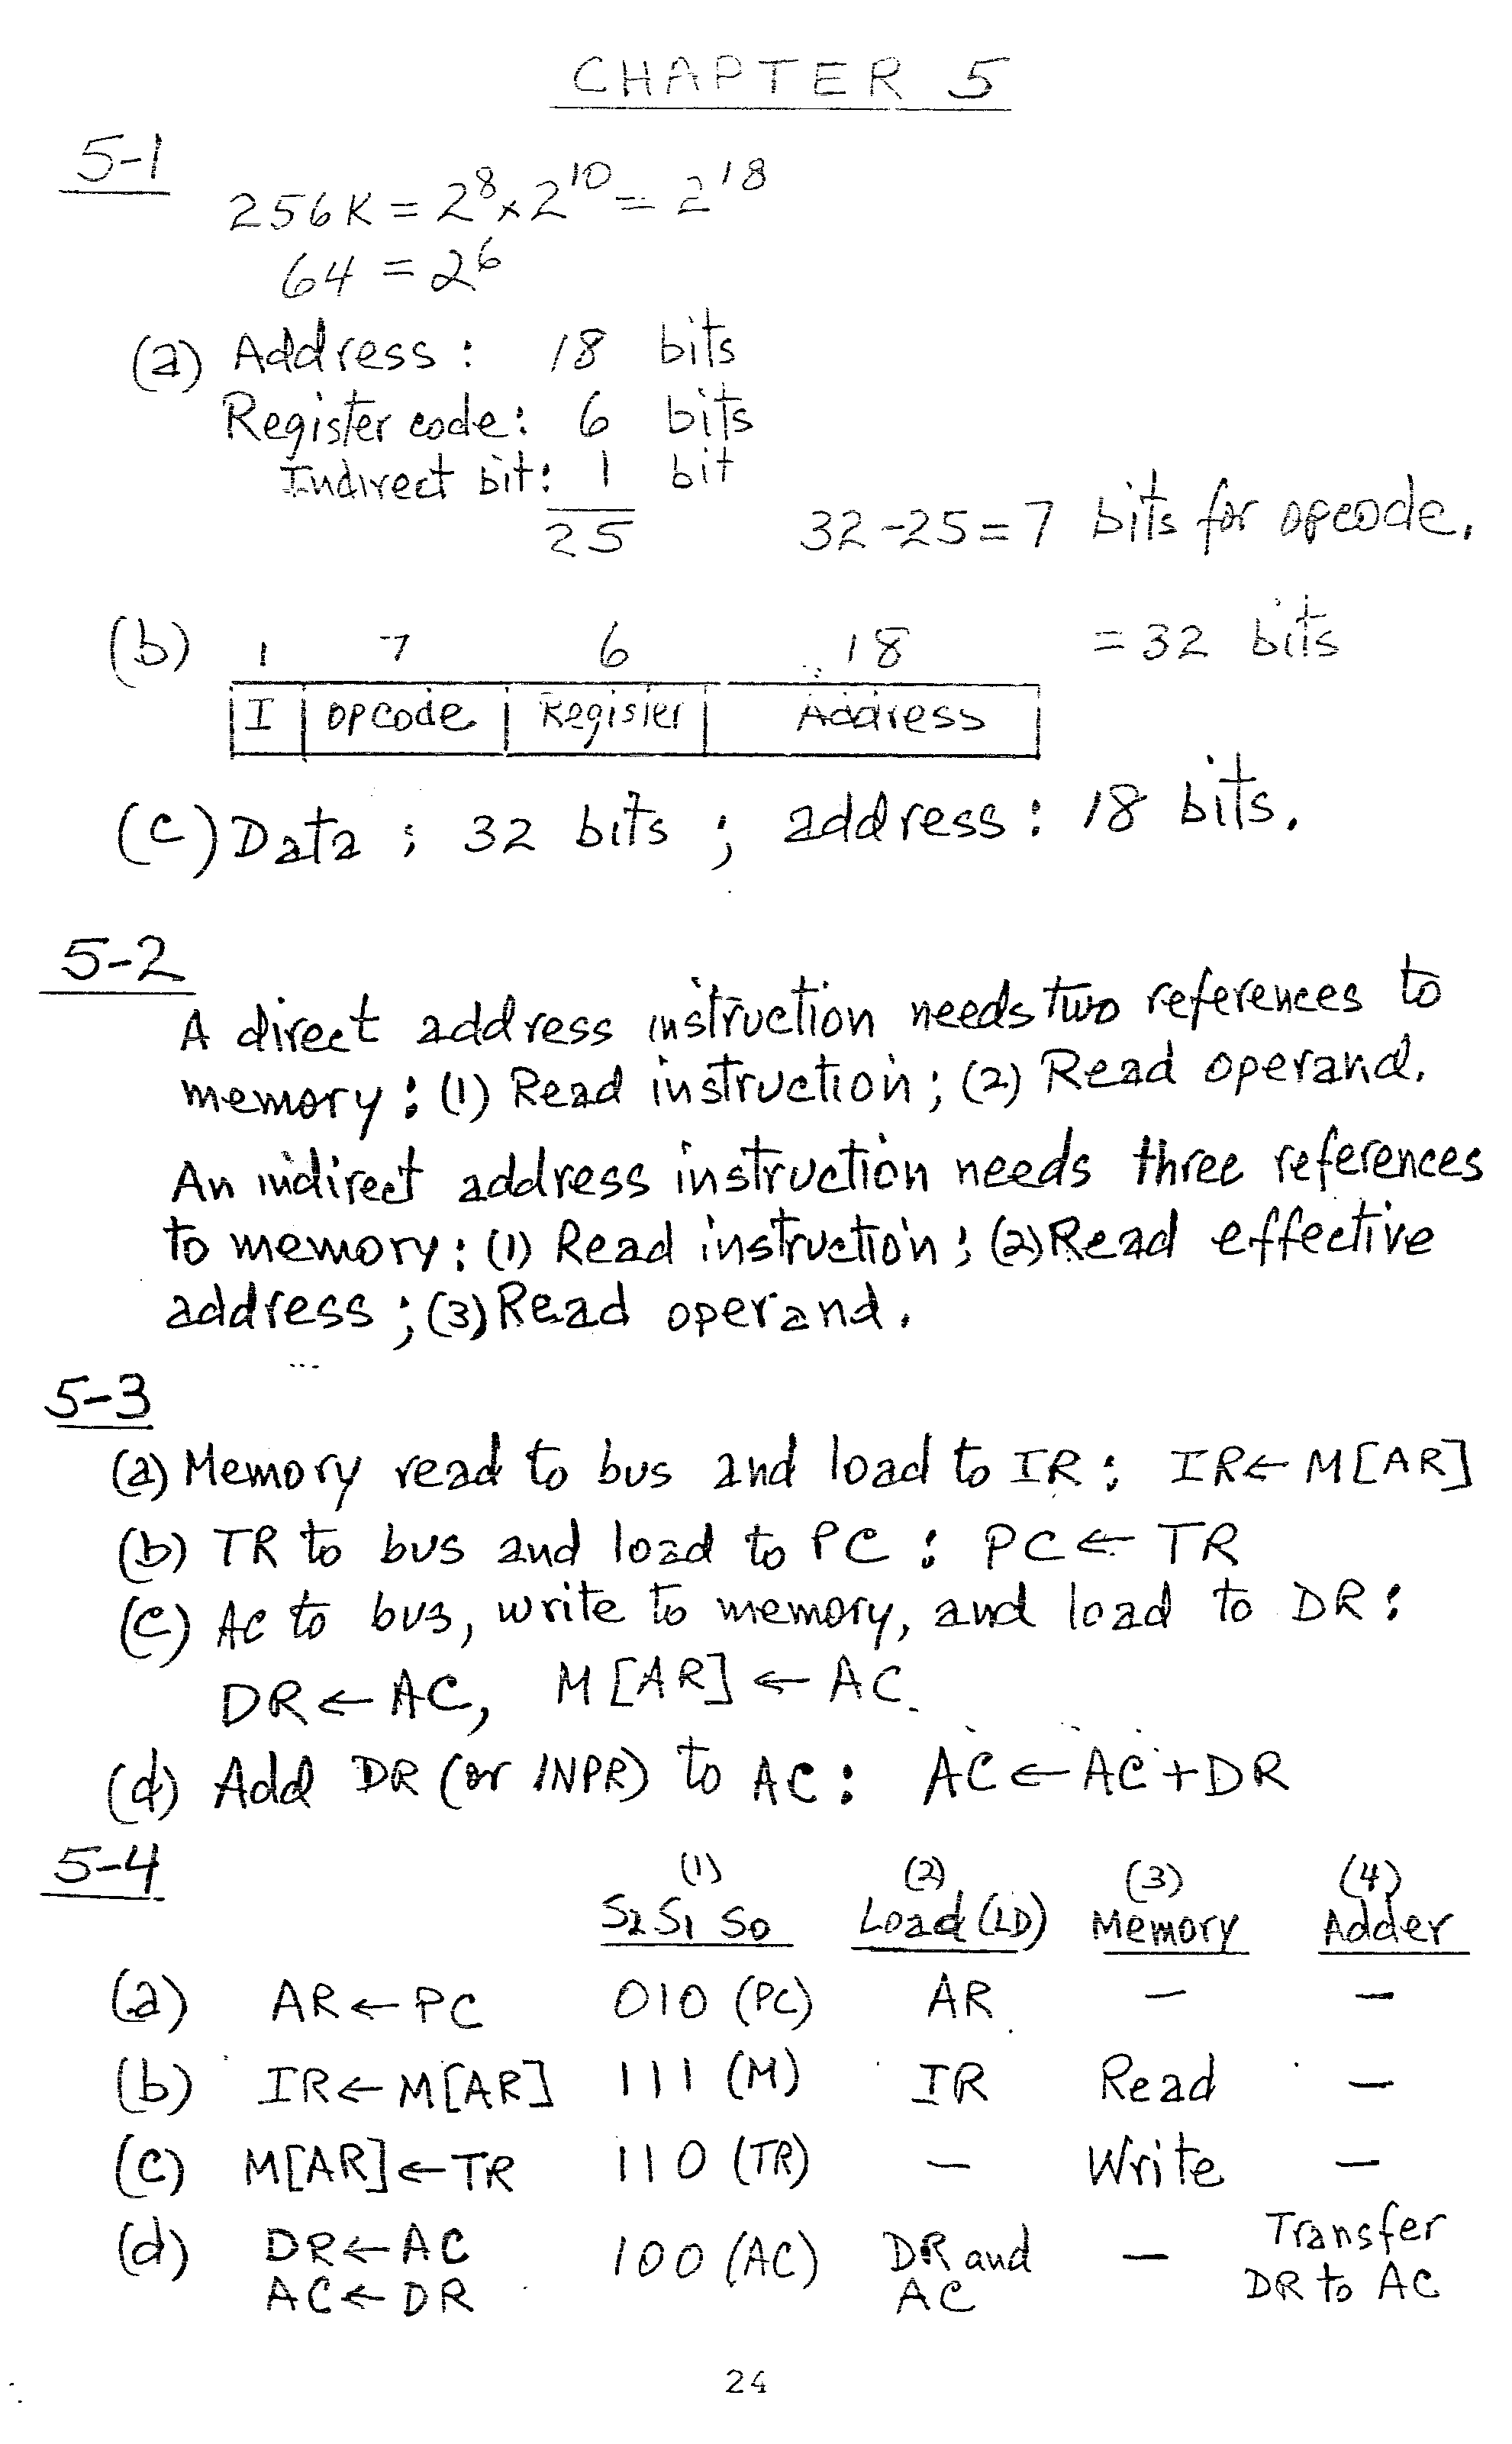 CHAPTER 5
5-1
256K = 2⁸ × 2¹⁰ = 2¹⁸
64 = 2⁶
(a) Address : 18 bits
Register code: 6 bits
Indirect bit: 1 bit
25 32-25=7 bits for opcode.
(b) 1 7 6 18 = 32 bits
I opcode Register Address
(c) Data ; 32 bits ; address : 18 bits.
5-2
A direct address instruction needs two references to
memory : (1) Read instruction ; (2) Read operand.
An indirect address instruction needs three references
to memory : (1) Read instruction ; (2) Read effective
address ; (3) Read operand.
5-3
(a) Memory read to bus and load to IR : IR ← M[AR]
(b) TR to bus and load to PC : PC ← TR
(c) AC to bus, write to memory, and load to DR :
DR ← AC, M[AR] ← AC.
(d) Add DR (or INPR) to AC : AC ← AC + DR
5-4 (1) (2) (3) (4)
S2 S1 S0 Load (LD) Memory Adder
(a) AR ← PC 010 (PC) AR — —
(b) IR ← M[AR] 111 (M) IR Read —
(c) M[AR] ← TR 110 (TR) — Write —
(d) DR ← AC 100 (AC) DR and — Transfer
AC ← DR AC DR to AC
24